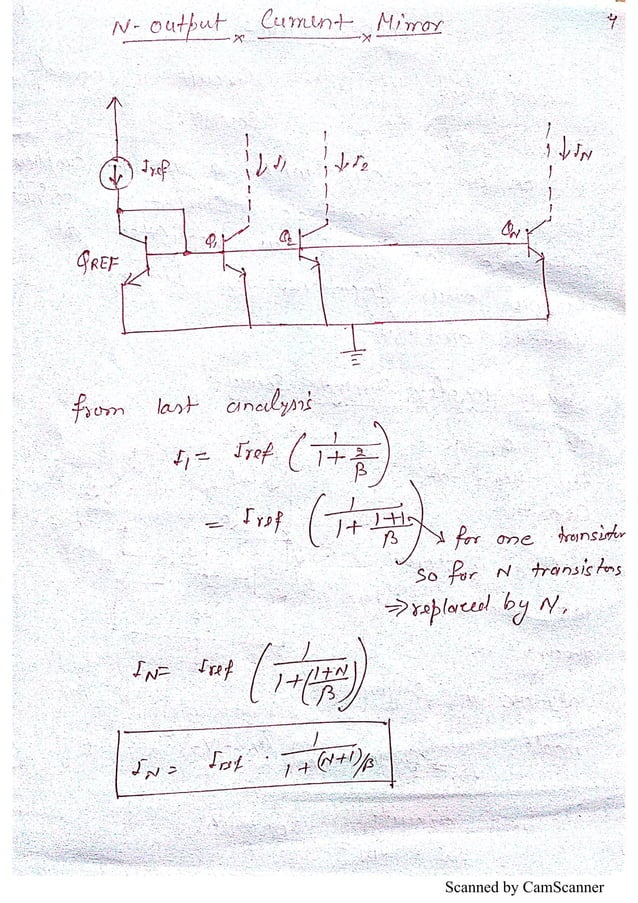 N-output Current Mirror 4
Iref I1 I2 IN
QREF Q1 Q2 QN
from last analysis
I1 = Iref ( 1 / (1 + 2/β) )
= Iref ( 1 / (1 + (1+1)/β) ) → for one transistor
so for N transistors
⇒ replaced by N.
IN = Iref ( 1 / (1 + ((1+N)/β)) )
IN = Iref · 1 / (1 + (N+1)/β)
Scanned by CamScanner